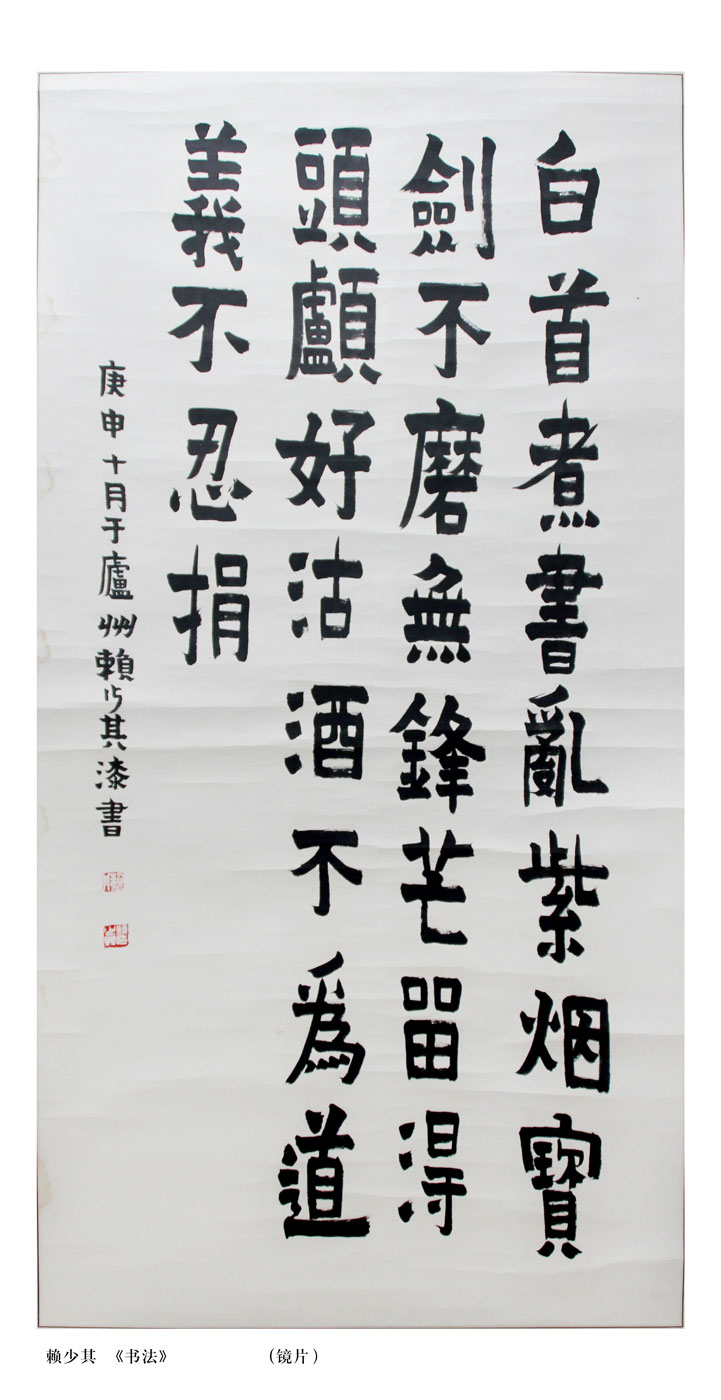 白首煮書亂紫烟寶
劍不磨無鋒芒畱得
頭顱好沽酒不為道
義不忍捐
庚申十月于廬州賴少其漆書
赖少其 《书法》 （镜片）